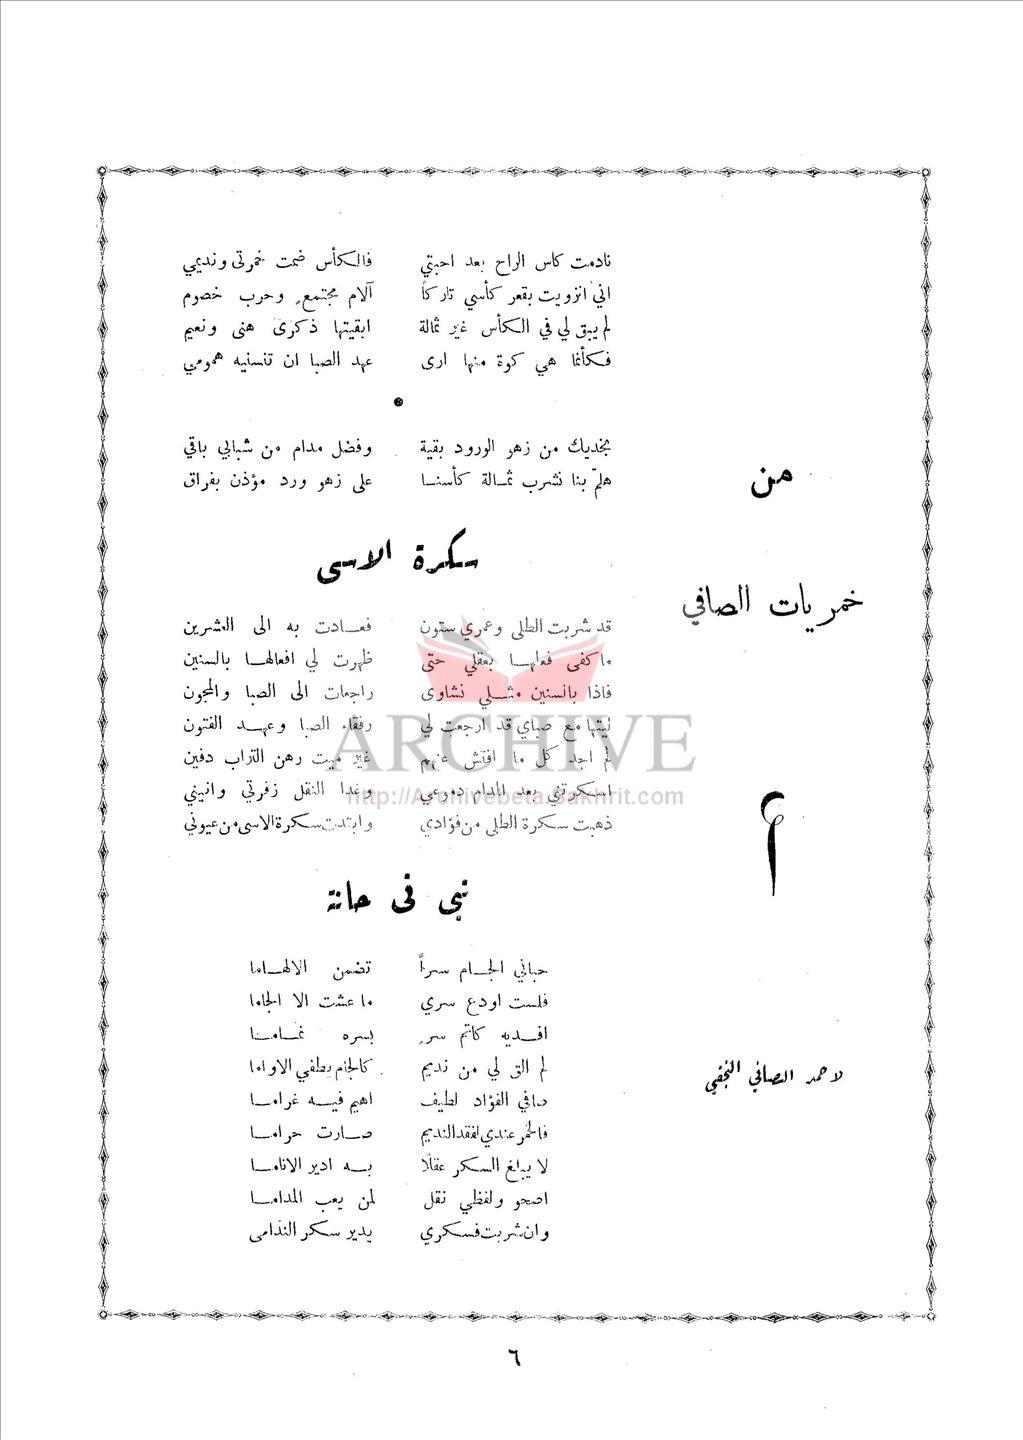 من
خمريات الصافي
لاحمد الصافي النجفي
نادمت كاس الراح بعد احبتي فالكأس ضمت خمرتي ونديمي
اني انزويت بقعر كأسي تاركاً آلام مجتمع وحرب خصوم
لم يبق لي في الكأس غير ثمالة ابقيتها ذكرى هنى ونعيم
فكأنما هي كوة منها ارى عهد الصبا ان تنسنيه همومي
بخديك من زهو الورود بقية وفضل مدام من شبابي باقي
هلمّ بنا نشرب ثمالة كأسنا على زهو ورد مؤذن بفراق
سكرة الاسى
قد شربت الطلى وعمري ستون فعادت به الى العشرين
ما كفى فعلها بعقلي حتى ظهرت لي افعالها بالسنين
فاذا بالسنين مثلي نشاوى راجعات الى الصبا والمجون
ليتها مع صباي قد ارجعت لي رفقاء الصبا وعهد الفتون
لم اجد كل ما افتش عنهم غير ميت رهن التراب دفين
اسكرتني بعد المدام دموعي وغدا النقل زفرتي وانيني
ذهبت سكرة الطلى من فؤادي وابتدت سكرة الاسى من عيوني
نبي في حانة
حباني الجام سراً تضمن الالهاما
فلست اودع سري ما عشت الا الجاما
افديه كاتم سر بسره نماما
لم الق لي من نديم كالجام يطفي الاواما
صافي الفؤاد لطيف اهيم فيه غراما
فالخمر عندي لفقد النديم صارت حراما
لا يبلغ السكر عقلا به ادير الاناما
اصحو ولفظي نقل لمن يعب المداما
وان شربت فسكري يدير سكر الندامى
٦
ARCHIVE
http://Archivebeta.Sakhrit.com